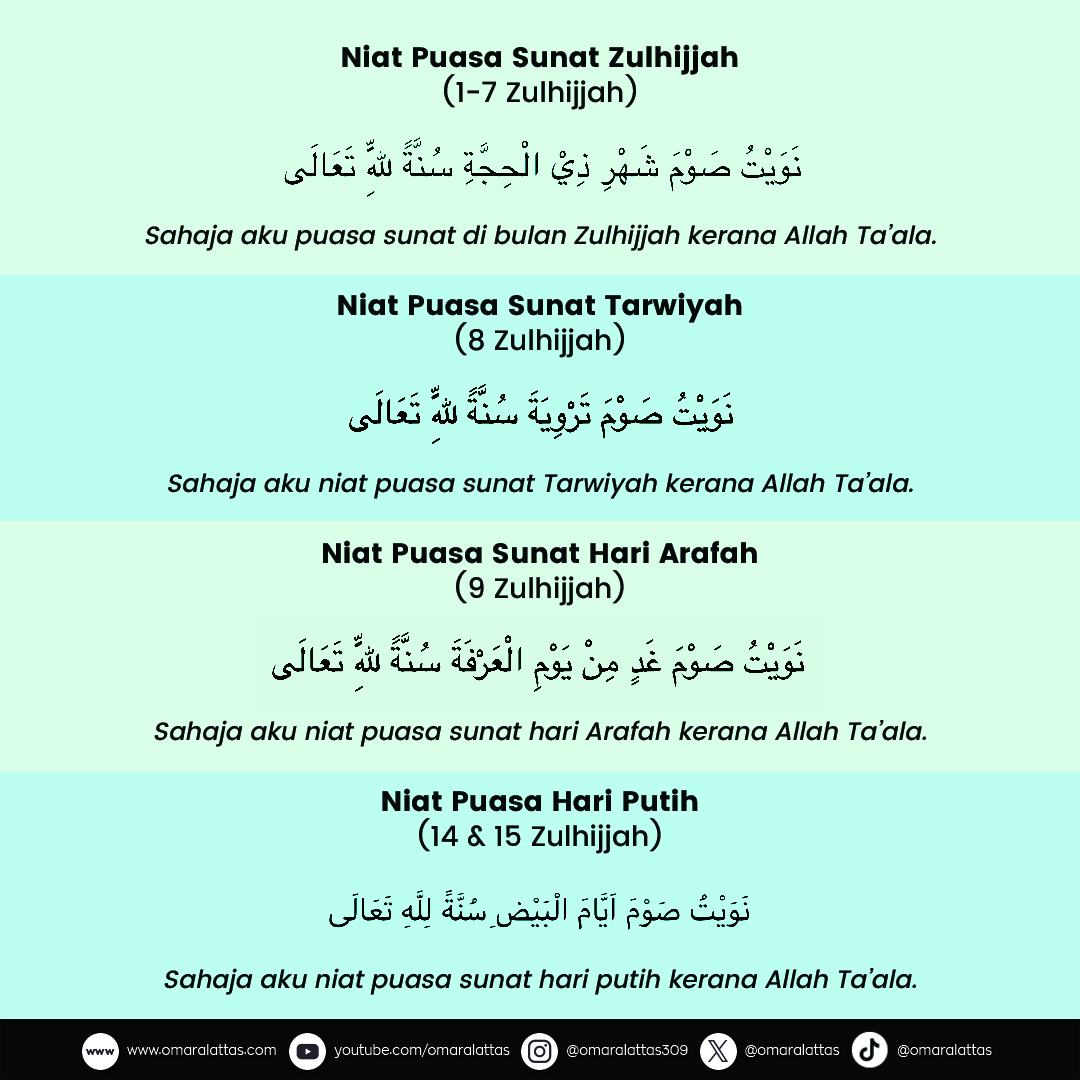 Niat Puasa Sunat Zulhijjah
(1-7 Zulhijjah)
نَوَيْتُ صَوْمَ شَهْرِ ذِيْ الْحِجَّةِ سُنَّةً لِلَّهِ تَعَالَى
Sahaja aku puasa sunat di bulan Zulhijjah kerana Allah Ta'ala.
Niat Puasa Sunat Tarwiyah
(8 Zulhijjah)
نَوَيْتُ صَوْمَ تَرْوِيَةَ سُنَّةً لِلَّهِ تَعَالَى
Sahaja aku niat puasa sunat Tarwiyah kerana Allah Ta'ala.
Niat Puasa Sunat Hari Arafah
(9 Zulhijjah)
نَوَيْتُ صَوْمَ غَدٍ مِنْ يَوْمِ الْعَرْفَةَ سُنَّةً لِلَّهِ تَعَالَى
Sahaja aku niat puasa sunat hari Arafah kerana Allah Ta'ala.
Niat Puasa Hari Putih
(14 & 15 Zulhijjah)
نَوَيْتُ صَوْمَ اَيَّامَ الْبَيْضِ سُنَّةً لِلَّهِ تَعَالَى
Sahaja aku niat puasa sunat hari putih kerana Allah Ta'ala.
www www.omaralattas.com youtube.com/omaralattas @omaralattas309 @omaralattas @omaralattas